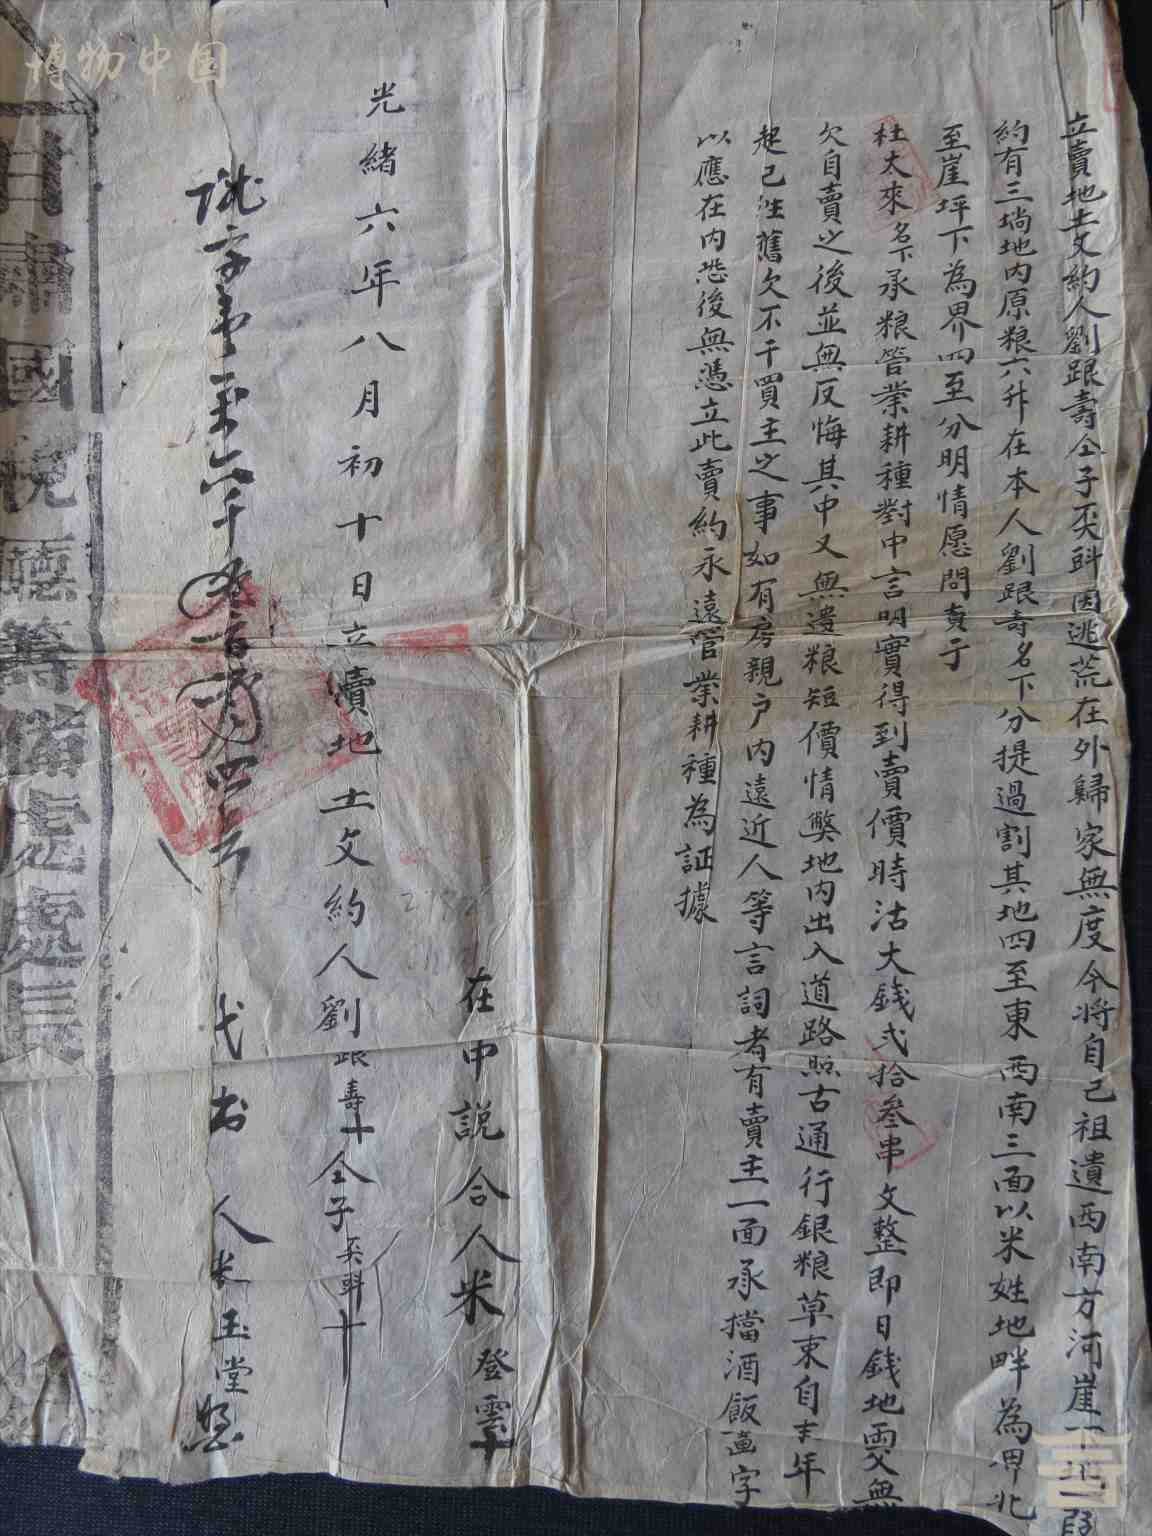 立賣地土文約人劉跟壽仝子奀䦆因逃荒在外歸家無度今將自己祖遺西南方河崖下地一段
約有三埫地內原粮六升在本人劉跟寿名下分提過割其地四至東西南三面以米姓地畔為界北
至崖坪下為界四至分明情愿問賣于
杜太來名下承粮管業耕種對中言明實得到賣價時沽大錢弍拾叁串文整即日錢地兩交無
欠自賣之後並無反悔其中又無遺粮短價情獘地內出入道路照古通行銀粮草束自本年
起已徃舊欠不干買主之事如有房親戶內遠近人等言詞者有賣主一面承擋酒飯画字
以應在內恐後無憑立此賣約永遠管業耕種為証據
在中說合人米登雲十
光緒六年八月初十日立賣地土文約人劉跟壽十仝子奀十
字第 六千 百 四
代书人米玉堂
甘肅國稅廳籌備處處長
博物中国